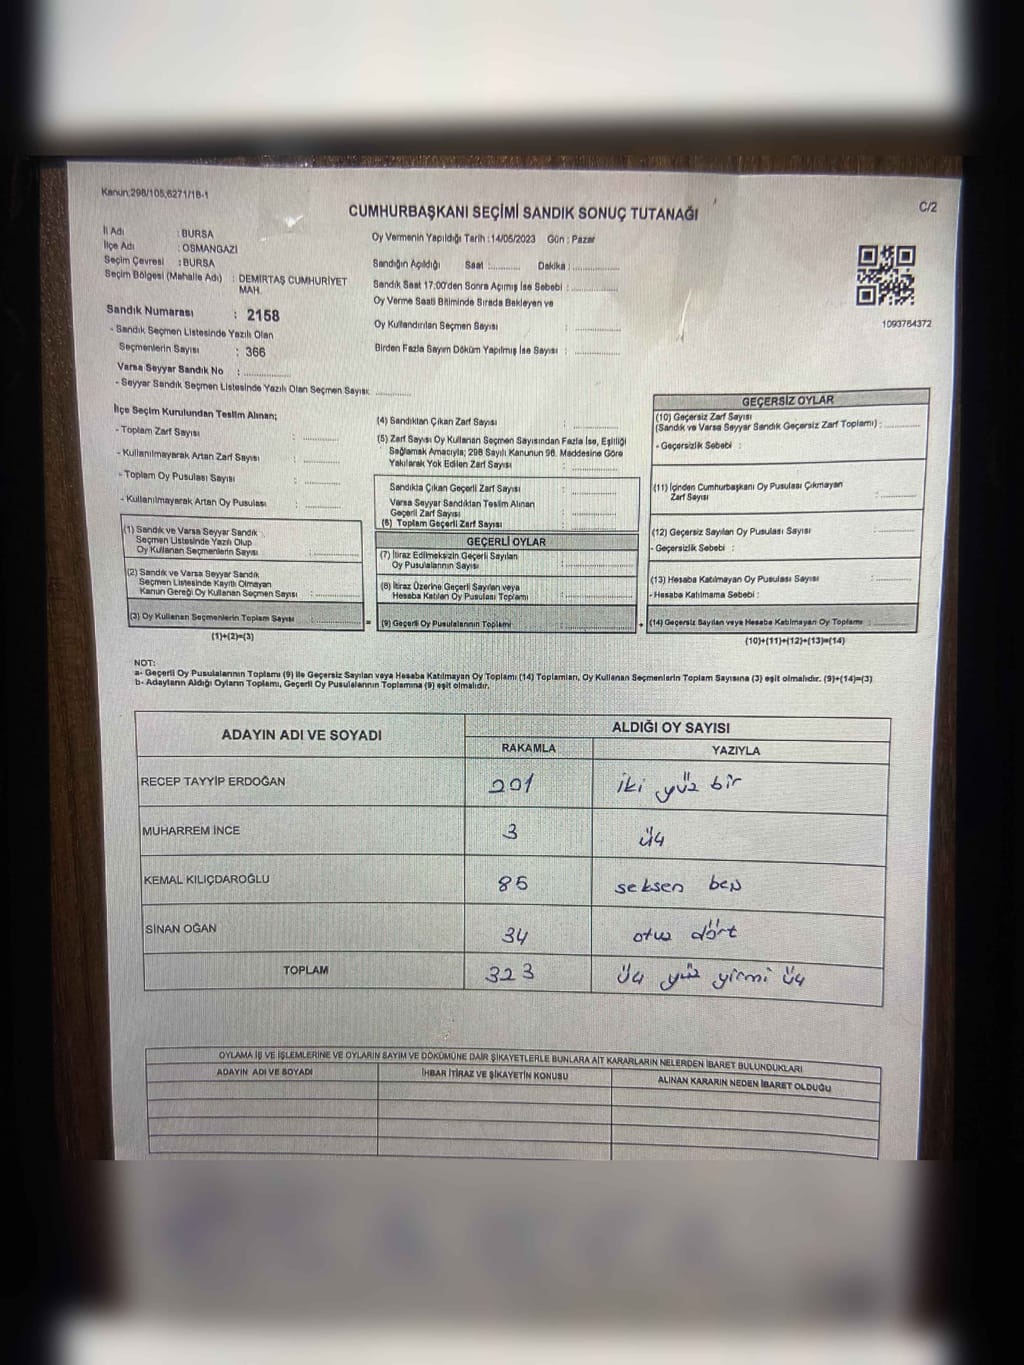 Kanun:298/105,6271/18-1
C/2
CUMHURBAŞKANI SEÇİMİ SANDIK SONUÇ TUTANAĞI
İl Adı : BURSA
İlçe Adı : OSMANGAZİ
Seçim Çevresi : BURSA
Seçim Bölgesi (Mahalle Adı) : DEMİRTAŞ CUMHURİYET MAH.
Sandık Numarası : 2158
- Sandık Seçmen Listesinde Yazılı Olan
Seçmenlerin Sayısı : 366
Varsa Seyyar Sandık No : ............
- Seyyar Sandık Seçmen Listesinde Yazılı Olan Seçmen Sayısı: ............
Oy Vermenin Yapıldığı Tarih : 14/05/2023 Gün : Pazar
Sandığın Açıldığı Saat : ......... Dakika : ............
Sandık Saat 17:00'den Sonra Açılmış İse Sebebi : ............
Oy Verme Saati Bitiminde Sırada Bekleyen ve
Oy Kullandırılan Seçmen Sayısı : ............
Birden Fazla Sayım Döküm Yapılmış İse Sayısı : ............
1093764372
İlçe Seçim Kurulundan Teslim Alınan;
- Toplam Zarf Sayısı : ............
- Kullanılmayarak Artan Zarf Sayısı : ............
- Toplam Oy Pusulası Sayısı : ............
- Kullanılmayarak Artan Oy Pusulası : ............
(1) Sandık ve Varsa Seyyar Sandık
Seçmen Listesinde Yazılı Olup
Oy Kullanan Seçmenlerin Sayısı : ............
(2) Sandık ve Varsa Seyyar Sandık
Seçmen Listesinde Kayıtlı Olmayan
Kanun Gereği Oy Kullanan Seçmen Sayısı : ............
(3) Oy Kullanan Seçmenlerin Toplam Sayısı : ............
(1)+(2)=(3)
(4) Sandıktan Çıkan Zarf Sayısı : ............
(5) Zarf Sayısı Oy Kullanan Seçmen Sayısından Fazla İse, Eşitliği
Sağlamak Amacıyla; 298 Sayılı Kanunun 98. Maddesine Göre
Yakılarak Yok Edilen Zarf Sayısı : ............
Sandıkta Çıkan Geçerli Zarf Sayısı : ............
Varsa Seyyar Sandıktan Teslim Alınan
Geçerli Zarf Sayısı : ............
(6) Toplam Geçerli Zarf Sayısı : ............
GEÇERLİ OYLAR
(7) İtiraz Edilmeksizin Geçerli Sayılan
Oy Pusulalarının Sayısı : ............
(8) İtiraz Üzerine Geçerli Sayılan veya
Hesaba Katılan Oy Pusulası Toplamı : ............
= (9) Geçerli Oy Pusulalarının Toplamı : ............
GEÇERSİZ OYLAR
(10) Geçersiz Zarf Sayısı
(Sandık ve Varsa Seyyar Sandık Geçersiz Zarf Toplamı) : ............
- Geçersizlik Sebebi :
(11) İçinden Cumhurbaşkanı Oy Pusulası Çıkmayan
Zarf Sayısı : ............
(12) Geçersiz Sayılan Oy Pusulası Sayısı : ............
- Geçersizlik Sebebi :
(13) Hesaba Katılmayan Oy Pusulası Sayısı : ............
- Hesaba Katılmama Sebebi :
+ (14) Geçersiz Sayılan veya Hesaba Katılmayan Oy Toplamı : ............
(10)+(11)+(12)+(13)=(14)
NOT:
a- Geçerli Oy Pusulalarının Toplamı (9) ile Geçersiz Sayılan veya Hesaba Katılmayan Oy Toplamı (14) Toplamları, Oy Kullanan Seçmenlerin Toplam Sayısına (3) eşit olmalıdır. (9)+(14)=(3)
b- Adayların Aldığı Oyların Toplamı, Geçerli Oy Pusulalarının Toplamına (9) eşit olmalıdır.
ADAYIN ADI VE SOYADI ALDIĞI OY SAYISI
RAKAMLA YAZIYLA
RECEP TAYYİP ERDOĞAN 201 iki yüz bir
MUHARREM İNCE 3 üç
KEMAL KILIÇDAROĞLU 85 seksen beş
SİNAN OĞAN 34 otuz dört
TOPLAM 323 üç yüz yirmi üç
OYLAMA İŞ VE İŞLEMLERİNE VE OYLARIN SAYIM VE DÖKÜMÜNE DAİR ŞİKAYETLERLE BUNLARA AİT KARARLARIN NELERDEN İBARET BULUNDUKLARI
ADAYIN ADI VE SOYADI İHBAR İTİRAZ VE ŞİKAYETİN KONUSU ALINAN KARARIN NEDEN İBARET OLDUĞU